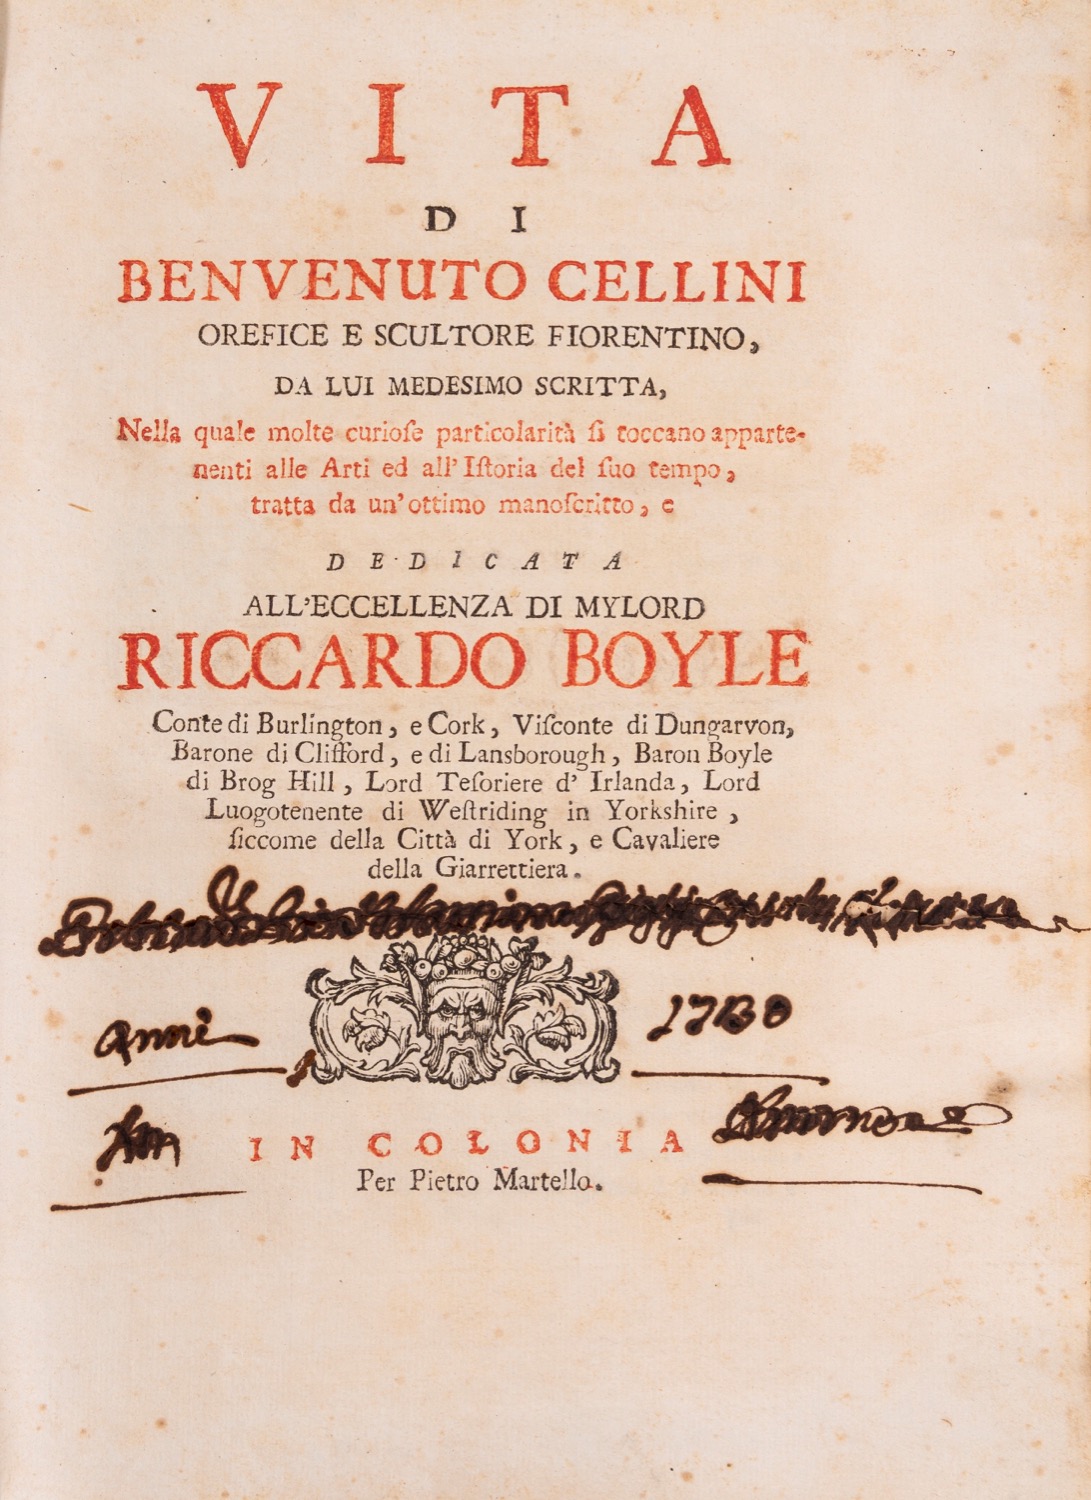 VITA
DI
BENVENUTO CELLINI
OREFICE E SCULTORE FIORENTINO,
DA LUI MEDESIMO SCRITTA,
Nella quale molte curioſe particolarità ſi toccano apparte-
nenti alle Arti ed all' Iſtoria del ſuo tempo,
tratta da un' ottimo manoſcritto, e
DEDICATA
ALL'ECCELLENZA DI MYLORD
RICCARDO BOYLE
Conte di Burlington, e Cork, Viſconte di Dungarvon,
Barone di Clifford, e di Lansborough, Baron Boyle
di Brog Hill, Lord Teſoriere d' Irlanda, Lord
Luogotenente di Weſtriding in Yorkshire,
ſiccome della Città di York, e Cavaliere
della Giarrettiera.
IN COLONIA
Per Pietro Martello.